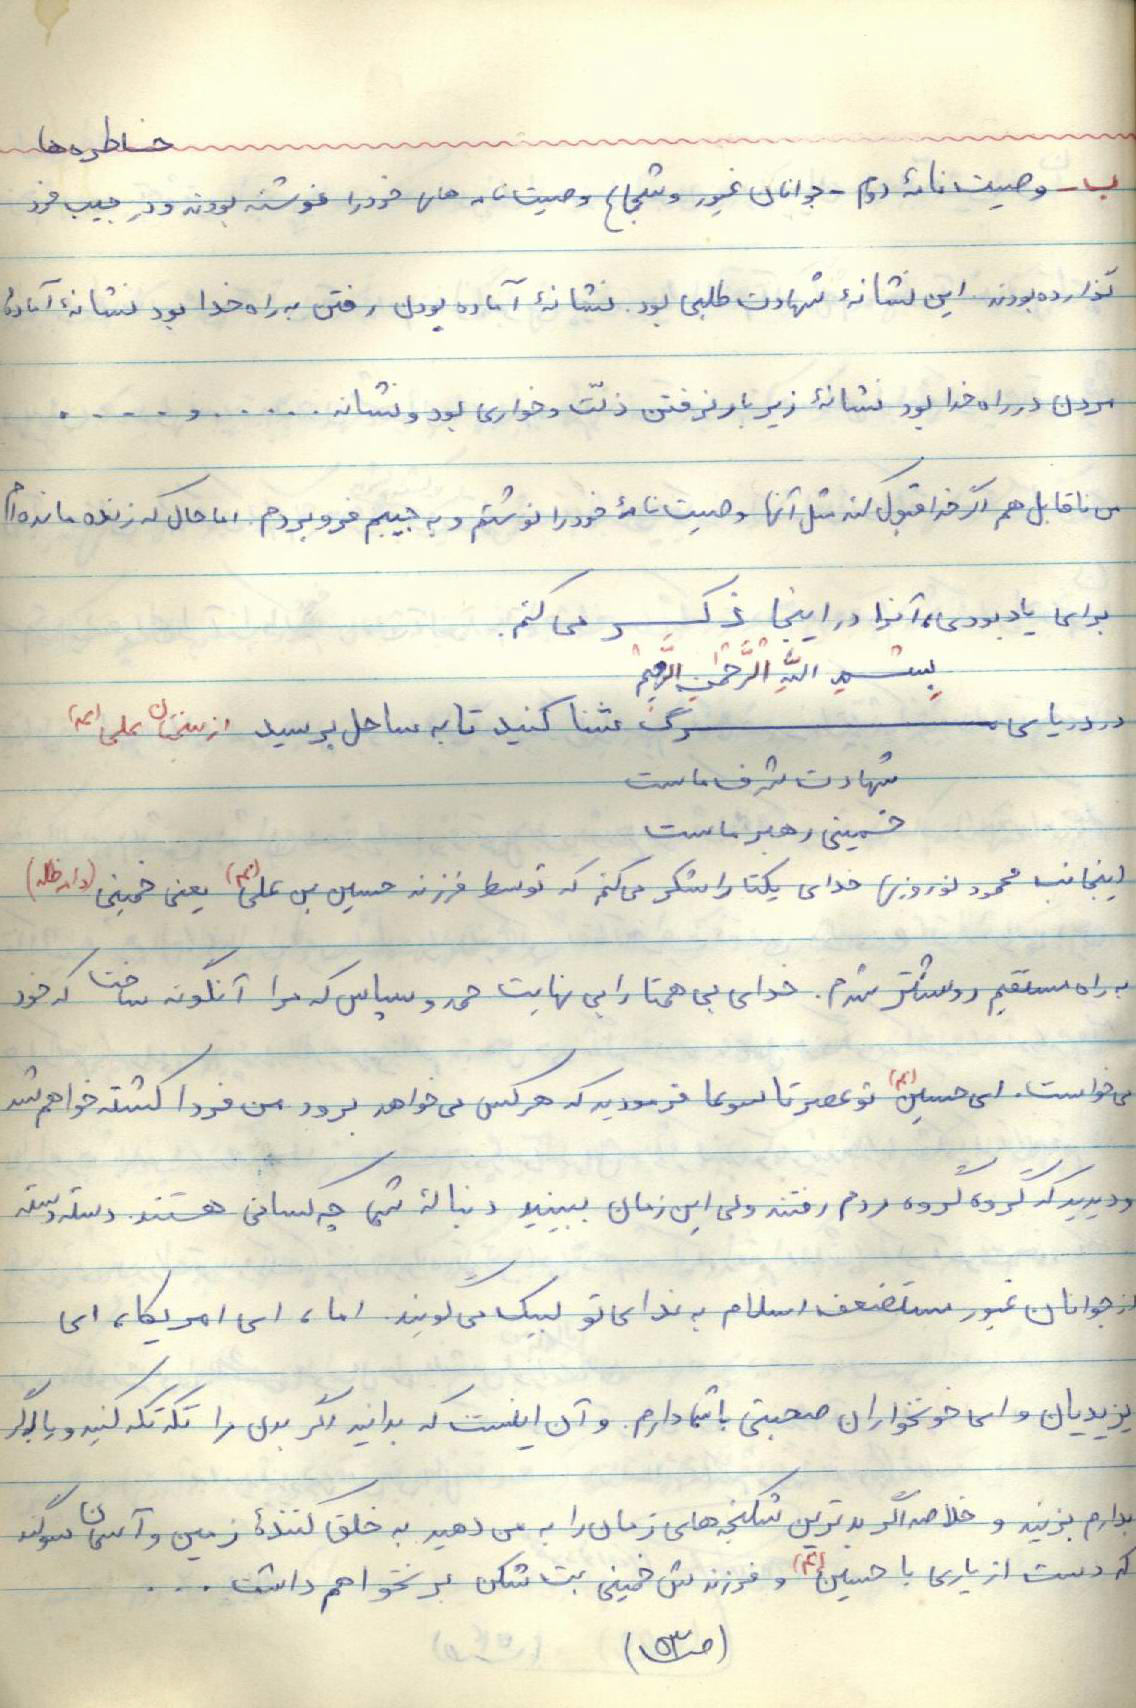 خاطره‌ها
ب - وصیت نامهٔ دوم - جوانان غیور و شجاع وصیت نامه های خود را نوشته بودند و در جیب خود
گذارده بودند. این نشانهٔ شهادت طلبی بود. نشانهٔ آماده بودن رفتن به راه خدا بود نشانهٔ آمادهٔ
مردن در راه خدا بود نشانهٔ زیر بار نرفتن ذلّت و خواری بود و نشانه ...... و .....
من ناقابل هم اگر خدا قبول کند مثل آنها وصیت نامهٔ خود را نوشتم و به جیبم فرو بردم. اما حال که زنده مانده‌ام
برای یادبودی، آنرا در اینجا ذکر می کنم.
بسم اللهِ الرَّحمٰنِ الرَّحیم
در دریای مرگ شنا کنید تا به ساحل برسید از سخنان علی (ع)
شهادت شرف ماست
خمینی رهبر ماست
اینجانب محمود نوروزیها خدای یکتا را شکر می کنم که توسط فرزند حسین بن علی (ع) یعنی خمینی (دام ظله)
به راه مستقیم روشنتر شدم. خدای بی همتا را بی نهایت حمد و سپاس که مرا آنگونه ساخت که خود
می خواست. ای حسین (ع) تو عصر تاسوعا فرمودید که هر کس می خواهد برود من فردا کشته خواهم شد
و دیدید که گروه گروه مردم رفتند ولی این زمان ببینید دنبالهٔ شما چه کسانی هستند. دسته دسته
از جوانان غیور مستضعف اسلام به ندای تو لبیک می گویند. اما، ای امریکا، ای
یزیدیان و ای خونخواران صحبتی با شما دارم. و آن اینست که بدانید اگر بدن مرا تکه تکه کنید و یا اگر
بدارم بزنید و خلاصه اگر بدترین شکنجه های زمان را به من دهید به خلق کنندهٔ زمین و آسمان سوگند
که دست از یاری با حسین (ع) و فرزندش خمینی بت شکن بر نخواهم داشت ...
(ص ۵۳)